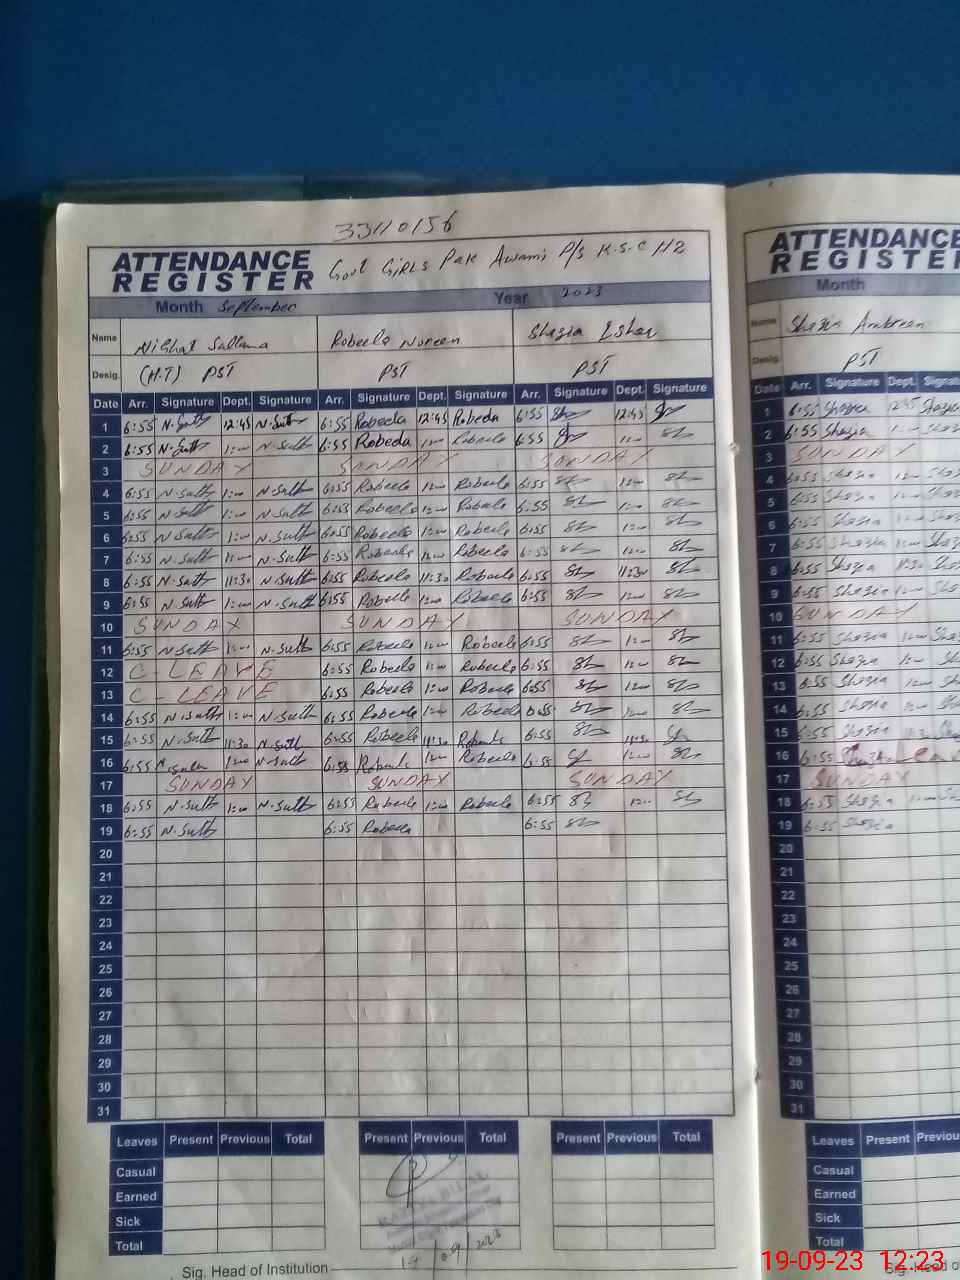 33110156
ATTENDANCE REGISTER Govt GIRLS Pak Awami P/s K.S.C H2
Month September Year 2023
Name Nishat Sultana Robeela Noreen Shazia
Desig. (H.T) PST PST PST
Date Arr. Signature Dept. Signature Arr. Signature Dept. Signature Arr. Signature Dept. Signature
1 6:55 N.Sult 12:45 N.Sult 6:55 Robeela 12:45 Robeela 6:55 12:45
2 6:55 N.Sult 1:00 N.Sult 6:55 Robeela 1:00 Robeela 6:55 1:00
3 SUNDAY SUNDAY SUNDAY
4 6:55 N.Sult 1:00 N.Sult 6:55 Robeela 1:00 Robeela 6:55 1:00
5 6:55 N.Sult 1:00 N.Sult 6:55 Robeela 1:00 Robeela 6:55 1:00
6 6:55 N.Sult 1:00 N.Sult 6:55 Robeela 1:00 Robeela 6:55 1:00
7 6:55 N.Sult 1:00 N.Sult 6:55 Robeela 1:00 Robeela 6:55 1:00
8 6:55 N.Sult 11:30 N.Sult 6:55 Robeela 11:30 Robeela 6:55 11:30
9 6:55 N.Sult 1:00 N.Sult 6:55 Robeela 1:00 Robeela 6:55 1:00
10 SUNDAY SUNDAY SUNDAY
11 6:55 N.Sult 1:00 N.Sult 6:55 Robeela 1:00 Robeela 6:55 1:00
12 C-LEAVE 6:55 Robeela 1:00 Robeela 6:55 1:00
13 C-LEAVE 6:55 Robeela 1:00 Robeela 6:55 1:00
14 6:55 N.Sult 1:00 N.Sult 6:55 Robeela 1:00 Robeela 6:55 1:00
15 6:55 N.Sult 11:30 N.Sult 6:55 Robeela 11:30 Robeela 6:55 11:30
16 6:55 N.Sult 1:00 N.Sult 6:55 Robeela 1:00 Robeela 6:55 1:00
17 SUNDAY SUNDAY SUNDAY
18 6:55 N.Sult 1:00 N.Sult 6:55 Robeela 1:00 Robeela 6:55 1:00
19 6:55 N.Sult 6:55 Robeela 6:55
20
21
22
23
24
25
26
27
28
29
30
31
Leaves Present Previous Total Present Previous Total Present Previous Total
Casual
Earned
Sick
Total
19/09/2023
Sig. Head of Institution
ATTENDANCE REGISTER
Month
Name Shazia Ambreen
Desig. PST
Date Arr. Signature Dept.
1 6:55 Shazia 12:45 Shazia
2 6:55 Shazia 1:00
3 SUNDAY
4 6:55 Shazia 1:00
5 6:55 Shazia 1:00
6 6:55 Shazia 1:00
7 6:55 Shazia 1:00
8 6:55 Shazia 11:30
9 6:55 Shazia 1:00
10 SUNDAY
11 6:55 Shazia 1:00
12 6:55 Shazia 1:00
13 6:55 Shazia 1:00
14 6:55 Shazia 1:00
15 6:55 Shazia 11:30
16 6:55
17 SUNDAY
18 6:55 Shazia 1:00
19 6:55 Shazia
20
21
22
23
24
25
26
27
28
29
30
31
Leaves Present
Casual
Earned
Sick
Total
Sig. Head
19-09-23 12:23